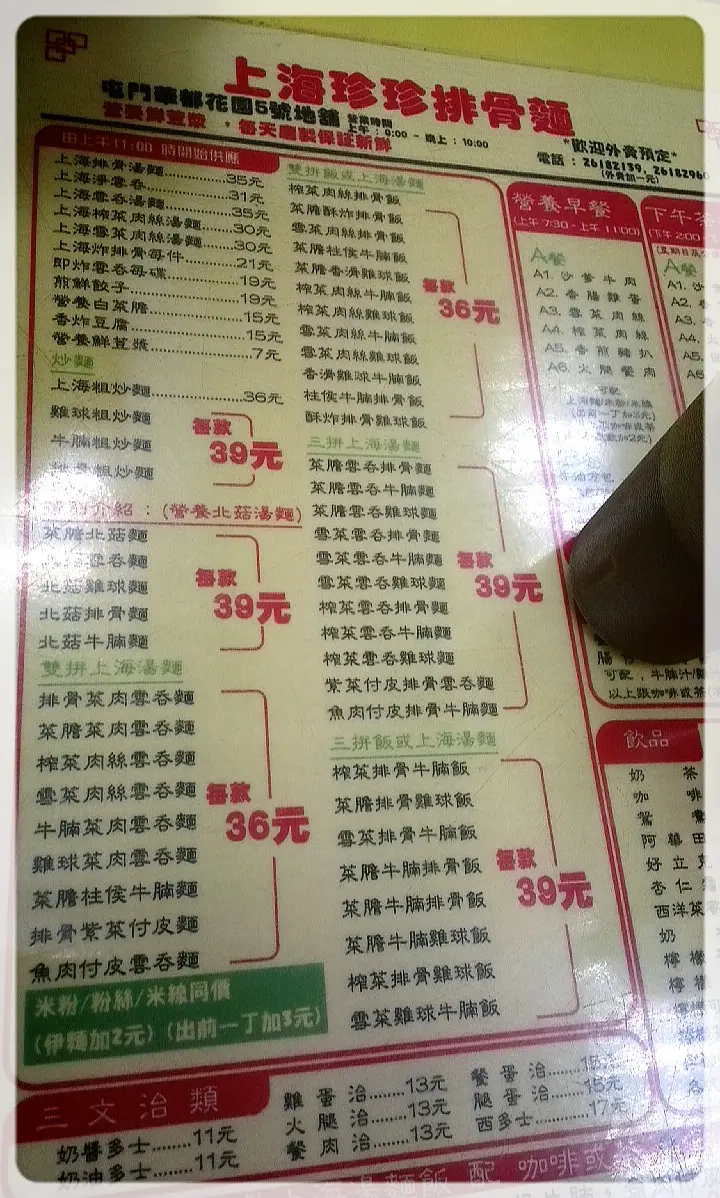 上海珍珍排骨麵
屯門華都花園5號地舖
營業時間
上午：8:00 - 晚上：10:00
，每天磨製保証新鮮
*歡迎外賣預定*
電話：26182139, 2618296
(外賣加一元)
由上午11:00 時開始供應
上海排骨湯麵 35元
上海淨雲吞 31元
上海雲吞湯麵 35元
上海榨菜肉絲湯麵 30元
上海雪菜肉絲湯麵 30元
上海炸排骨每件 21元
即炸雲吞每碟 19元
煎鮮餃子 19元
營養白菜膽 15元
香炸豆腐 15元
營養鮮荳漿 7元
炒麵
上海粗炒麵 36元
雞球粗炒麵
牛腩粗炒麵
排骨粗炒麵
每款
39元
介紹：(營養北菇湯麵)
菜膽北菇麵
北菇雲吞麵
北菇雞球麵
北菇排骨麵
北菇牛腩麵
每款
39元
雙拼上海湯麵
排骨菜肉雲吞麵
菜膽菜肉雲吞麵
榨菜肉絲雲吞麵
雪菜肉絲雲吞麵
牛腩菜肉雲吞麵
雞球菜肉雲吞麵
菜膽柱侯牛腩麵
排骨紫菜付皮麵
魚肉付皮雲吞麵
每款
36元
米粉/粉絲/米線同價
(伊麵加2元) (出前一丁加3元)
雙拼飯或上海湯麵
榨菜肉絲排骨飯
菜膽酥炸排骨飯
雪菜肉絲排骨飯
菜膽柱侯牛腩飯
菜膽香滑雞球飯
榨菜肉絲牛腩飯
榨菜肉絲雞球飯
雪菜肉絲牛腩飯
雪菜肉絲雞球飯
香滑雞球牛腩飯
柱侯牛腩排骨飯
酥炸排骨雞球飯
每款
36元
三拼上海湯麵
菜膽雲吞排骨麵
菜膽雲吞牛腩麵
菜膽雲吞雞球麵
雪菜雲吞排骨麵
雪菜雲吞牛腩麵
雪菜雲吞雞球麵
榨菜雲吞排骨麵
榨菜雲吞牛腩麵
榨菜雲吞雞球麵
紫菜付皮排骨雲吞麵
魚肉付皮排骨牛腩麵
每款
39元
三拼飯或上海湯麵
榨菜排骨牛腩飯
菜膽排骨雞球飯
雪菜排骨牛腩飯
菜膽牛腩排骨飯
菜膽牛腩排骨飯
菜膽牛腩雞球飯
榨菜排骨雞球飯
雪菜雞球牛腩飯
每款
39元
營養早餐
(上午 7:30 - 上午 11:00)
A餐
A1. 沙爹牛肉
A2. 香腸雞蛋
A3. 雪菜肉絲
A4. 榨菜肉絲
A5. 香煎豬扒
A6. 火腿餐肉
可配
上海麵/米粉/米線
(出前一丁加3元)
下午茶
(下午 2:00
A餐
A1. 沙
A2. 香
A3.
A4. 火
A5.
A6.
可配，牛腩汁/
以上跟咖啡或茶
飲品
奶 茶
咖 啡
鴛
阿華田
好立克
杏仁
西洋菜
奶
檸
檸
三文治類
奶醬多士 11元
奶油多士 11元
雞蛋治 13元
火腿治 13元
餐肉治 13元
餐蛋治
腿蛋治 15元
西多士 17元
湯麵飯 配 咖啡或